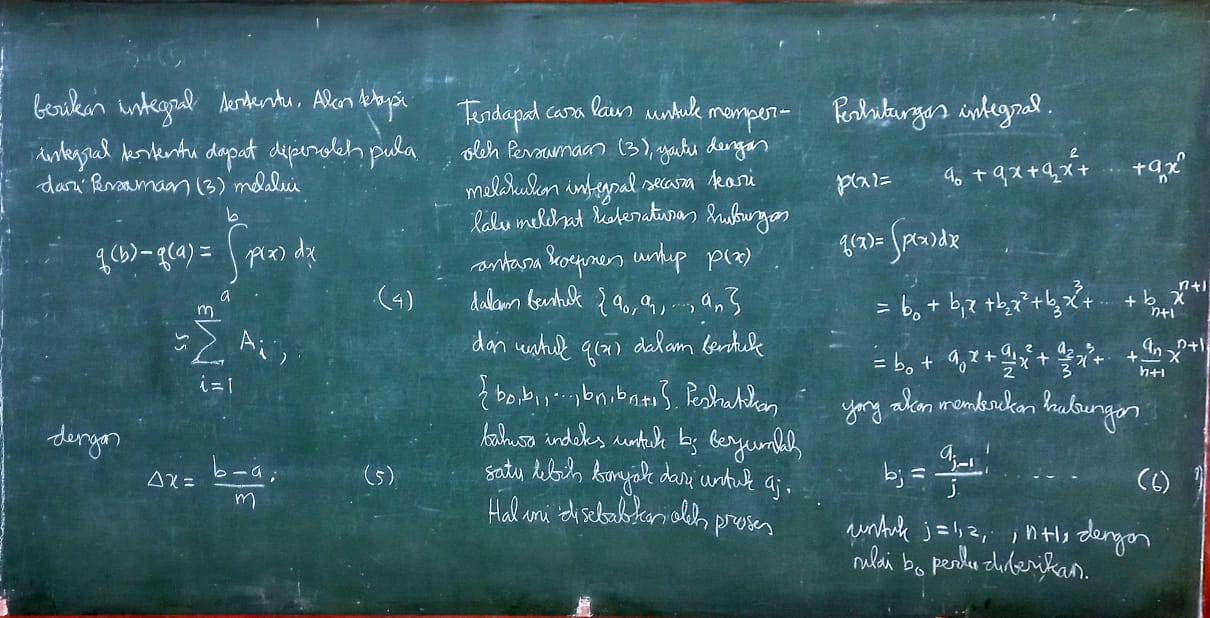 berikan integral tertentu. Akan tetapi
integral tertentu dapat diperoleh pula
dari Persamaan (3) melalui
q(b)-q(a) = ∫_a^b p(x) dx
≈ ∑_{i=1}^m A_i , (4)
dengan
Δx = (b-a)/m . (5)
Terdapat cara lain untuk memper-
oleh Persamaan (3), yaitu dengan
melakukan integral secara
lalu melihat keteraturan hubungan
antara koefisien untuk p(x)
dalam bentuk {a₀, a₁, ..., aₙ}
dan untuk q(x) dalam bentuk
{b₀, b₁, ..., bₙ, bₙ₊₁}. Perhatikan
bahwa indeks untuk bⱼ berjumlah
satu lebih banyak dari untuk aⱼ.
Hal ini disebabkan oleh proses
Perhitungan integral.
p(x) = a₀ + a₁x + a₂x² + ... + aₙxⁿ
q(x) = ∫p(x)dx
= b₀ + b₁x + b₂x² + b₃x³ + ... + bₙ₊₁xⁿ⁺¹
= b₀ + a₀x + a₁/2 x² + a₂/3 x³ + ... + aₙ/(n+1) xⁿ⁺¹
yang akan memberikan hubungan
bⱼ = aⱼ₋₁/j , ... (6)
untuk j=1, 2, .., n+1, dengan
nilai b₀ perlu diberikan.